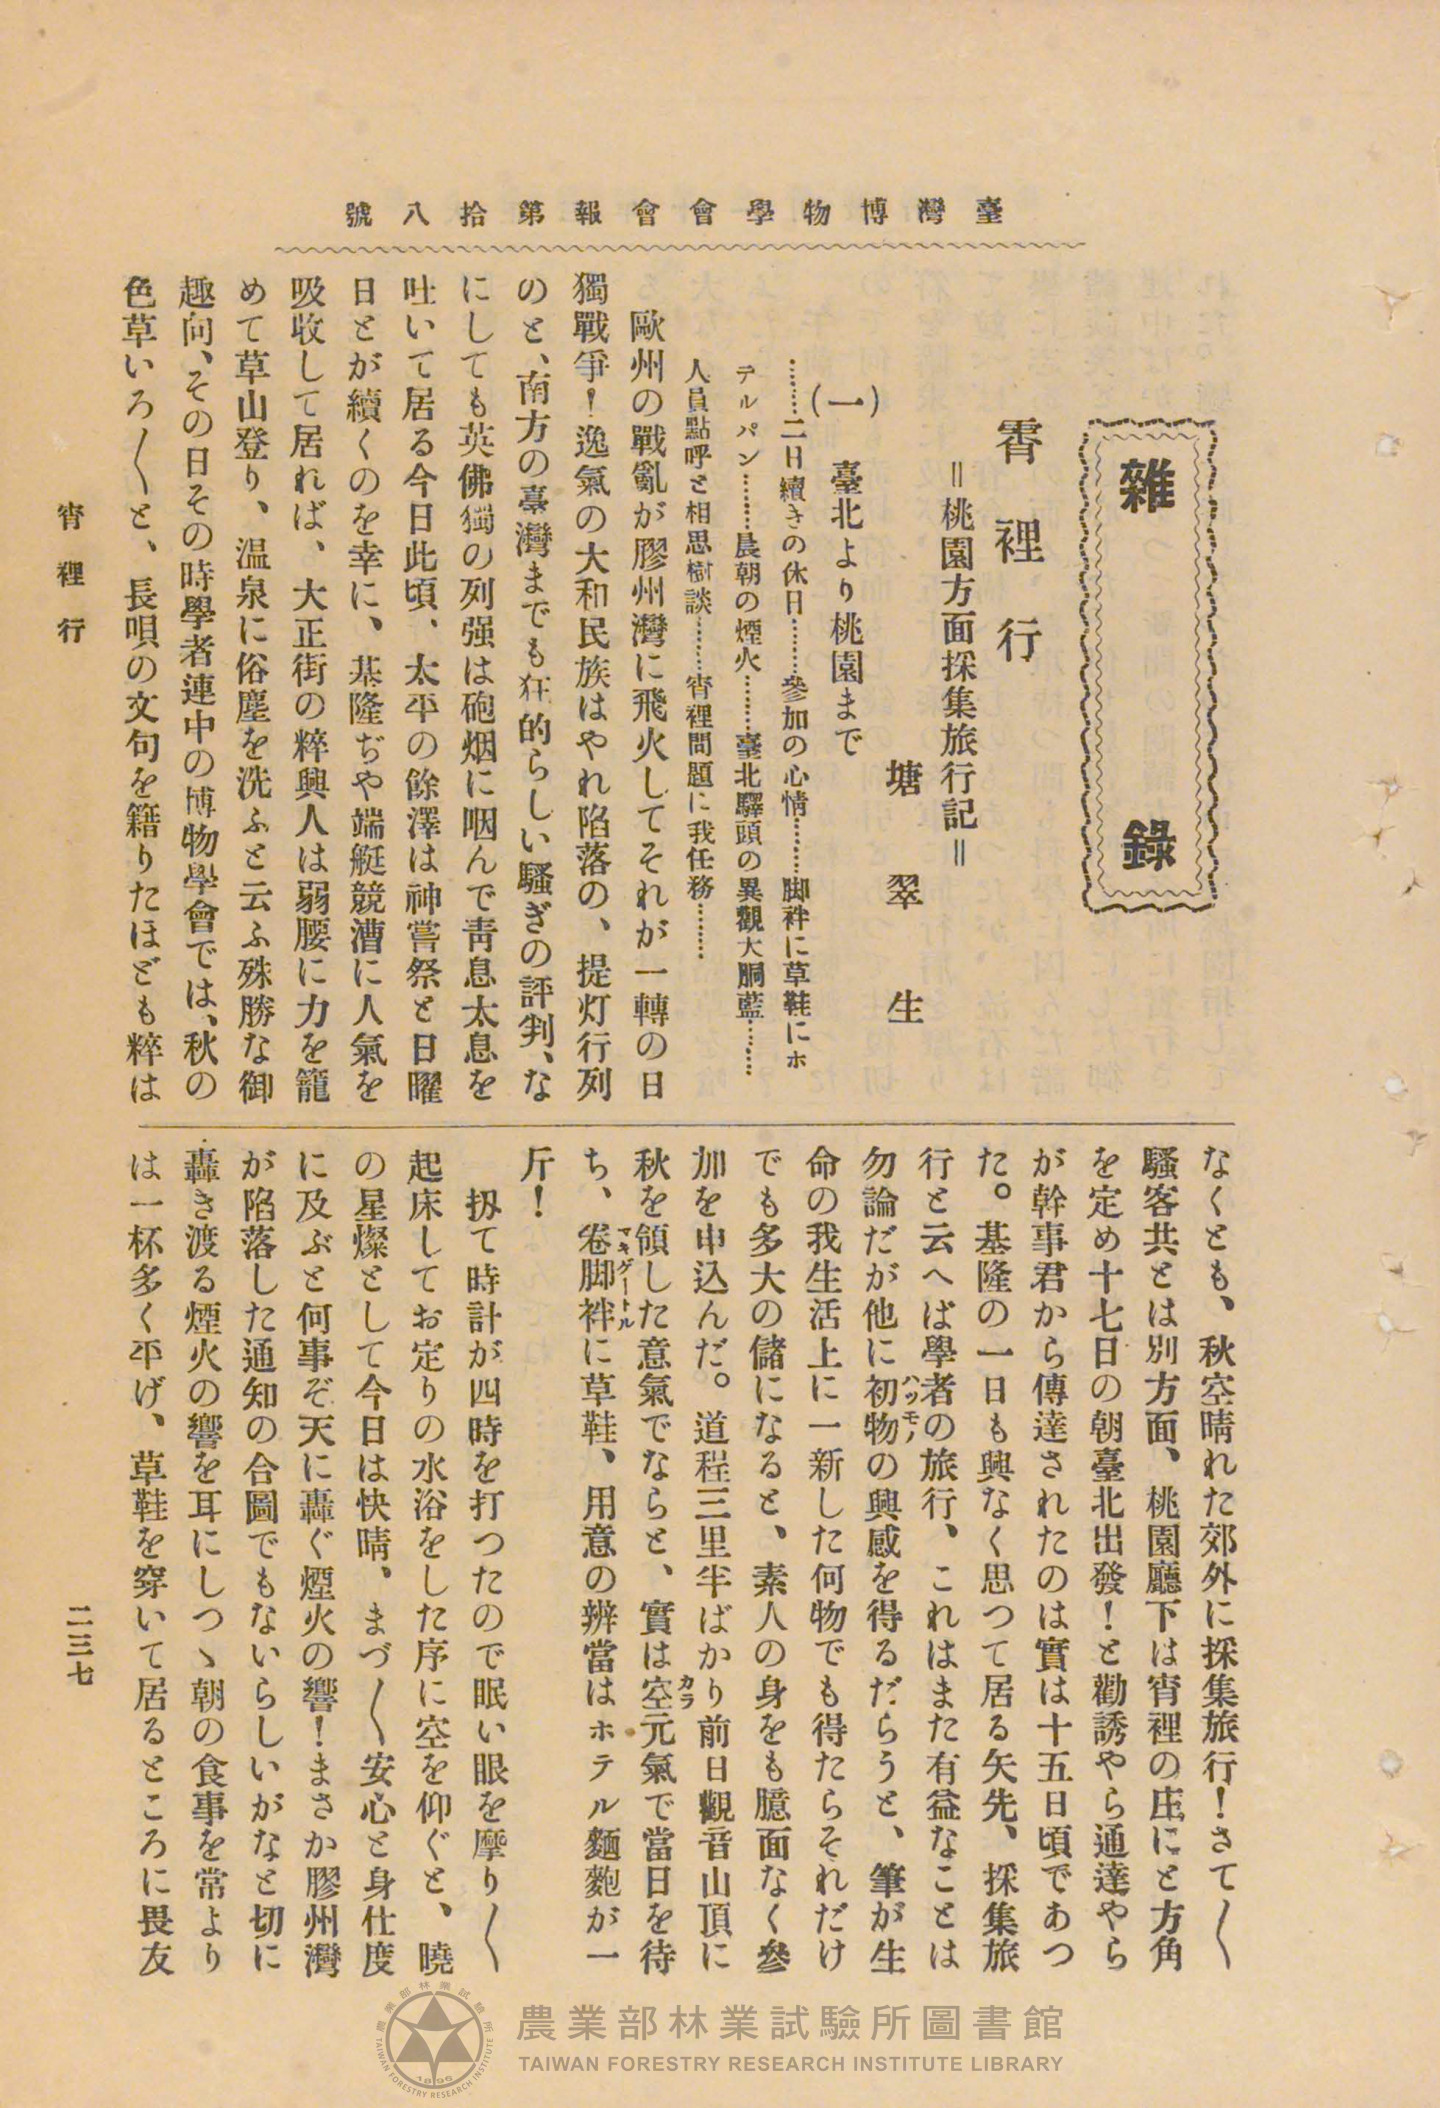 臺灣博物學會會報第拾八號
雜錄
霄裡行
＝桃園方面採集旅行記＝
塘翠生
(一) 臺北より桃園まで
………二日續きの休日………參加の心情………脚袢に草鞋にホ
テルパン………晨朝の煙火………臺北驛頭の異觀大胴藍………
人員點呼と相思樹談………宵裡問題に我任務………
歐州の戰亂が膠州灣に飛火してそれが一轉の日
獨戰爭！逸氣の大和民族はやれ陷落の、提灯行列
のと、南方の臺灣までも狂的らしい騷ぎの評判、な
にしても英佛獨の列强は砲烟に咽んで靑息太息を
吐いて居る今日此頃、太平の餘澤は神嘗祭と日曜
日とが續くのを幸に、基隆ぢや端艇競漕に人氣を
吸收して居れば、大正街の粹興人は弱腰に力を籠
めて草山登り、温泉に俗塵を洗ふと云ふ殊勝な御
趣向、その日その時學者連中の博物學會では、秋の
色草いろ〱と、長唄の文句を籍りたほども粹は
なくとも、秋空晴れた郊外に採集旅行！さて〱
騷客共とは別方面、桃園廳下は宵裡の庄にと方角
を定め十七日の朝臺北出發！と勸誘やら通達やら
が幹事君から傳達されたのは實は十五日頃であつ
た。基隆の一日も興なく思つて居る矢先、採集旅
行と云へば學者の旅行、これはまた有益なことは
勿論だが他に初物ハツモノの興感を得るだらうと、筆が生
命の我生活上に一新した何物でも得たらそれだけ
でも多大の儲になると、素人の身をも臆面なく參
加を申込んだ。道程三里半ばかり前日觀音山頂に
秋を領した意氣でならと、實は空カラ元氣で當日を待
ち、卷脚袢マキゲートルに草鞋、用意の辨當はホテル麵麭が一
斤！
扨て時計が四時を打つたので眠い眼を摩り〱
起床してお定りの水浴をした序に空を仰ぐと、曉
の星燦として今日は快晴、まづ〱安心と身仕度
に及ぶと何事ぞ天に轟ぐ煙火の響！まさか膠州灣
が陷落した通知の合圖でもないらしいがなと切に
轟き渡る煙火の響を耳にしつゝ朝の食事を常より
は一杯多く平げ、草鞋を穿いて居るところに畏友
宵裡行
二三七
農業部林業試驗所圖書館
TAIWAN FORESTRY RESEARCH INSTITUTE LIBRARY
農業部林業試驗所
1896
TAIWAN FORESTRY RESEARCH INSTITUTE